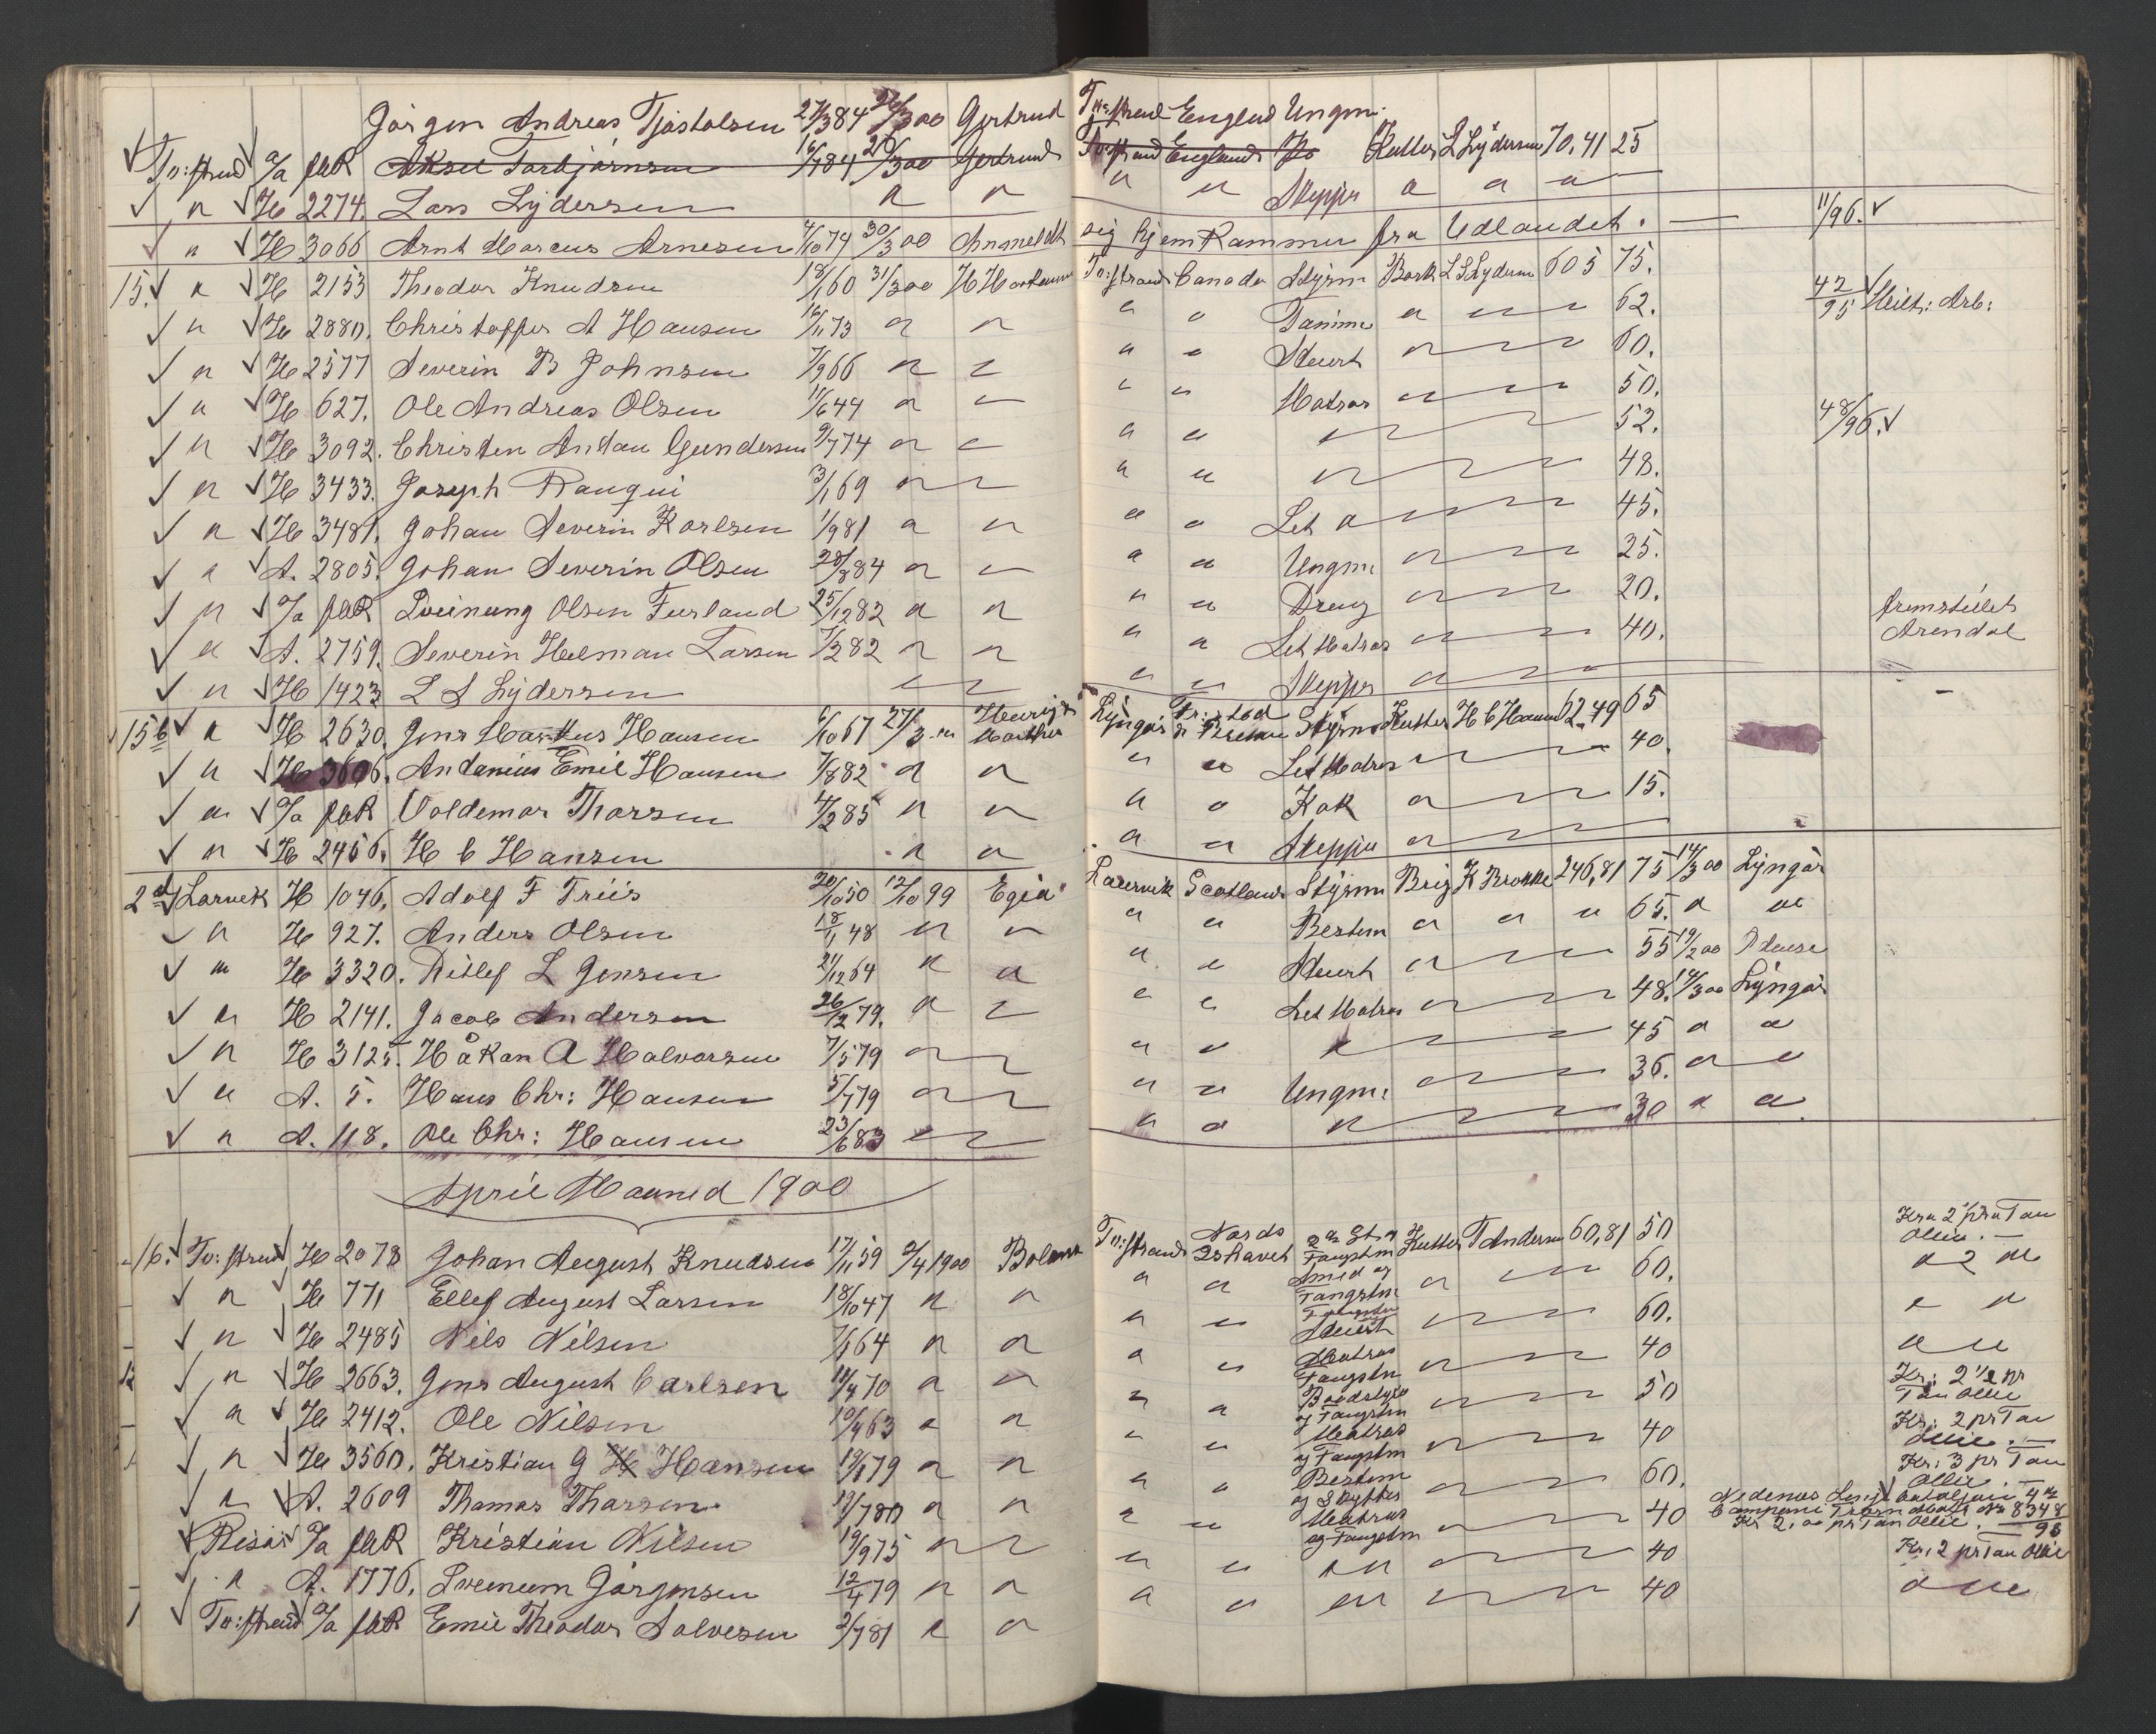 Jörgen Andreas Tjöstolsen 27/3 84 26/3 00 Gertrud Tv:strand England Ungm.
Tv:strand a/a flR Aksel Torbjörnsen 16/7 84 20/3 00 Gertrud Tv:strand England Kutter L Lydersen 70,41 25
" H 2274. Lars Lydersen " " " " Skipper " " "
" H 3066 Arnt Marcus Arnesen 4/10 74 30/3 00 Anmeldt sig hjemkommen fra Udlandet. 11/96.
15. " H 2153 Theodor Knudsen 18/1 60 31/3 00 Tv:strand Canada Styrm Bark L S Lydersen 605 75. 42/95
" H 2880. Christoffer A Hansen 14/11 73 " " " " Tømm " 62.
" H 2577 Severin B Johnsen 7/9 66 " " " " Stuert " 60.
" H 627. Ole Andreas Olsen 11/6 44 " " " " Matros " 50.
" H 3092. Christen Antan Gundersen 9/7 74 " " " " " 52. 48/96.
" H 3433. Joseph Rauqui 3/1 69 " " " " " 48.
" H 3481. Johan Severin Karlsen 1/9 81 " " " " Let " 45.
" A. 2805. Johan Severin Olsen 28/8 84 " " " " Ungm. " 25.
" a/a flR Sveinung Olsen Furland 25/12 82 " " " " Dreng " 20.
" A. 2759. Severin Helman Larsen 7/2 82 " " " " Let Matros " 40. fremstillet Arendal
" H 1423 L S Lydersen " " " " Skipper "
15b " H 2630. Jens Markus Hansen 6/10 67 27/3 00 Lyngör Fr:stad Styrm Kutter H C Hansen 62,49 65
" H 3606. Andanius Emil Hansen 7/8 82 " " " " Let Matros " 40.
" a/a flR Voldemar Thorsen 4/2 85 " " " " Kok " 15.
" H 2456. H C Hansen " " " " Skipper "
2d Larvik H 1046. Adolf F Friis 20/10 50 12/10 99 Egia Laurvik Scotland Styrm Brig K Bronke 246,81 75 14/3 00 Lyngör
" H 927. Anders Olsen 18/1 48 " " " " Bestm " " " 65. " "
" H 3320. Ditlef L Jensen 24/12 64 " " " " Stuert " 55 19/2 00
" H 2141. Jacob Andersen 26/12 79. " " " " Let Matros " 48. 14/3 00 Lyngör
" H 3125. Håkan A Halvorsen 7/5 79 " " " " " 45 " "
" A. 5. Hans Chr: Hansen 5/7 79 " " " " Ungm. " 36. " "
" A. 118. Ole Chr: Hansen 23/6 83 " " " " " 30 " "
April Maaned 1900
16. Tv:strand H 2078 Johan August Knudsen 17/11 59 2/4 1900 Tv:strand Nordo Ishavet 2den St. og Fangstm Kutter T Andersen 60,81 50 Kr: 2 1/2 pr Tøn Ollie.
" H 771 Ellef August Larsen 18/10 47 " " " " Smed og Fangstm " 60. " 2 "
" H 2485 Nils Nilsen 7/1 64 " " " " Fangstm Stuert " 60. " "
" H 2663. Jens August Carlsen 14/4 70 " " " " Matros Fangstm " 40 " "
" H 2412. Ole Nilsen 10/4 63 " " " " Baadstyrer og Fangstm " 50 Kr: 2 1/2 pr Tøn Ollie
" H 3560. Kristian G H Hansen 19/1 79 " " " " Matros og Fangstm " 40 Kr: 2 pr Tøn Ollie.
" A. 2609 Thomas Thorsen 19/7 80 " " " " Bestm og Skytter " 60. Kr: 3 pr Tøn Ollie.
Risör a/a flR Kristian Nilsen 19/9 75 " " " " Matros og Fangstm " 40 Nedenæs Linje bataljon 4de Companie No 8348/96 Kr 2,00 pr Tøn Ollie.
" A. 1776. Sveinum Jörgensen 12/4 79 " " " " " " 40 Kr: 2 pr Tøn Ollie
Tv:strand a/a flR Emil Theodor Salvesen 2/7 81 " " " " " " 40 " "